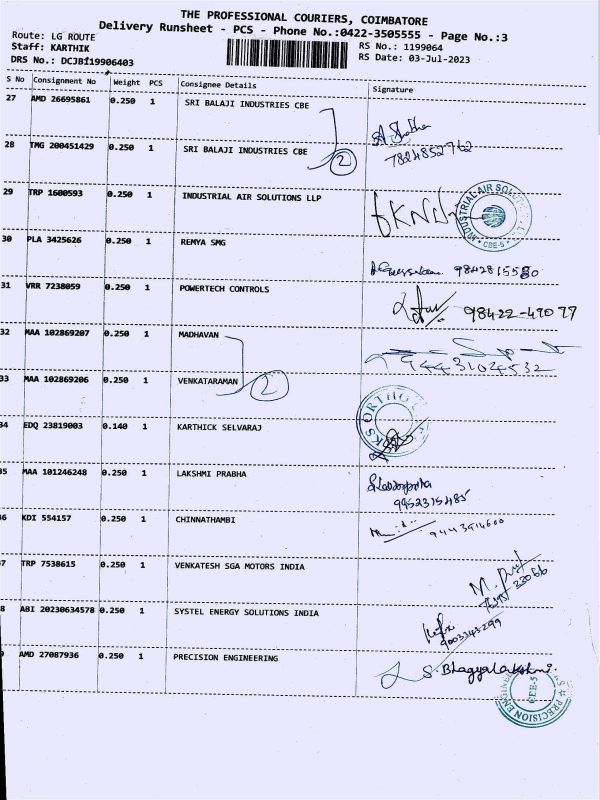 THE PROFESSIONAL COURIERS, COIMBATORE
Delivery Runsheet - PCS - Phone No.:0422-3505555 - Page No.:3
Route: LG ROUTE
Staff: KARTHIK
DRS No.: DCJBI19906403
RS No.: 1199064
RS Date: 03-Jul-2023
S No Consignment No Weight PCS Consignee Details Signature
27 AMD 26695861 0.250 1 SRI BALAJI INDUSTRIES CBE
28 TMG 200451429 0.250 1 SRI BALAJI INDUSTRIES CBE 2
7824852762
29 TRP 1600593 0.250 1 INDUSTRIAL AIR SOLUTIONS LLP
INDUSTRIAL AIR SOLU
CBE-5
30 PLA 3425626 0.250 1 REMYA SMG
31 VRR 7238059 0.250 1 POWERTECH CONTROLS 98422-47077
32 MAA 102869207 0.250 1 MADHAVAN
9443104532
33 MAA 102869206 0.250 1 VENKATARAMAN 2
34 EDQ 23819003 0.140 1 KARTHICK SELVARAJ
KS ORTHO
35 MAA 101246248 0.250 1 LAKSHMI PRABHA
9952315485
6 KDI 554157 0.250 1 CHINNATHAMBI 9443914600
7 TRP 7538615 0.250 1 VENKATESH SGA MOTORS INDIA
8 ABI 20230634578 0.250 1 SYSTEL ENERGY SOLUTIONS INDIA
9003343299
9 AMD 27087936 0.250 1 PRECISION ENGINEERING
S. Bhagyalakshmi.
PRECISION ENGINEE
CBE-5